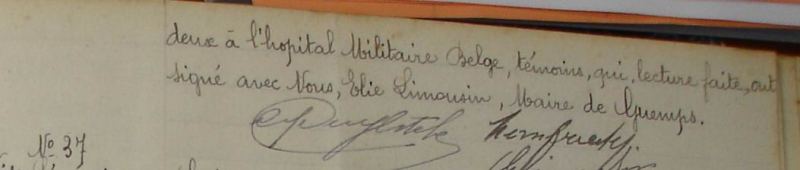 deux à l'hopital Militaire Belge, témoins, qui, lecture faite, ont
signé avec Nous, Elie Limousin, Maire de Guemps.
No 37